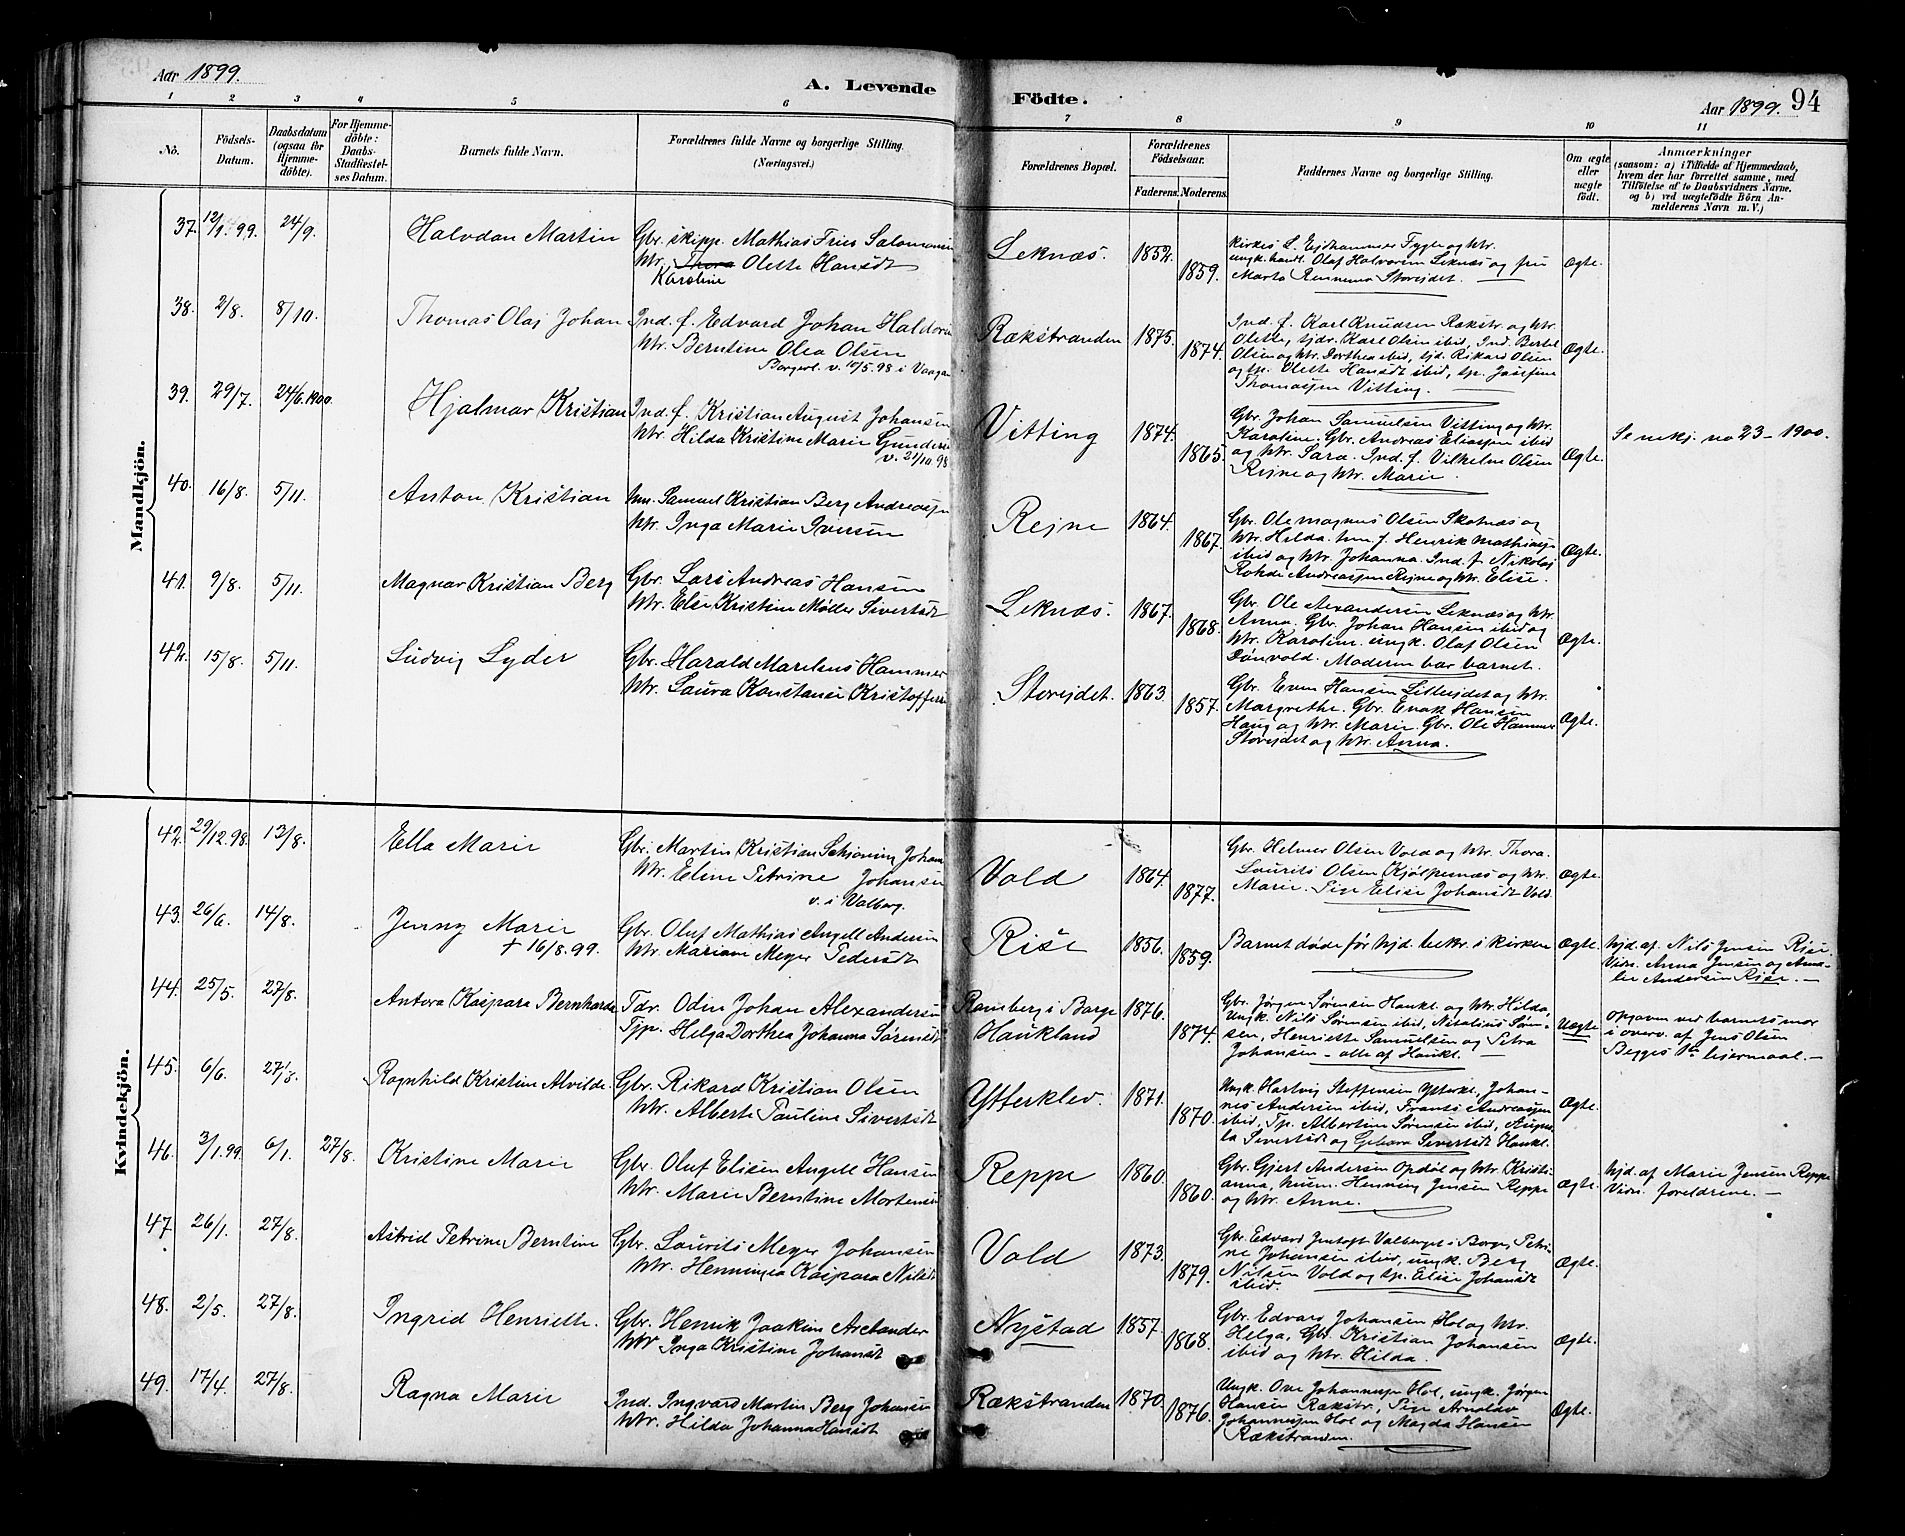 Aar 1899.
A. Levende
Födte.
Aar 1899. 94
1 2 3 4 5 6 7 8 9 10 11
No.
Födsels-Datum.
Daabsdatum (ogsaa for Hjemmedöbte).
For Hjemmedöbte: Daabs-Stadfæstelses Datum.
Barnets fulde Navn.
Forældrenes fulde Navne og borgerlige Stilling.
(Næringsvei.)
Forældrenes Bopæl.
Forældrenes Födselsaar.
Faderens. Moderens.
Faddernes Navne og borgerlige Stilling.
Om ægte eller uægte födt.
Anmærkninger
(saasom: a) i Tilfælde af Hjemmedaab,
hvem der har forrettet samme, med
Tilföielse af to Daabsvidners Navne.
og b) ved uægtefödte Börn Anmelderens Navn m. V.)
Mandkjön.
37. 12/1.99. 24/9. Halvdan Martin
Gbr. skipp. Mathias Fries Salomonsen
Htr. Thora Olette Hansdt
Karoline
Leknæs. 1852. 1859.
Marta Rennemo Storejdet.
Ægte.
38. 2/8. 8/10. Thomas Olaj Johan
Ind. f. Edvard Johan Haldorsen
Htr. Berntine Olea Olsen
Borgerl. v. 10/5.98 i Vaagan
Rækstranden 1875. 1874.
Ind. f. Karl Knudsen Rækstr. og Htr.
Olette, tjdr. Karl Olsen ibid, Ind. Bertel
Olsen og Htr. Dorthea ibid, tjd. Rikard Olsen
og tp. Olette Hansdt ibid, tp. Josefine
Thomassen Vitting.
Ægte.
39. 29/7. 24/6.1900. Hjalmar Kristian
Ind. f. Kristian August Johansen
Htr. Hilda Kristine Marie Gunders
v. 21/10.98
Vitting 1874. 1865.
Gbr. Johan Samuelsen Vitting og Htr.
Karoline, Gbr. Andreas Eliassen ibid
og Htr. Sara. Ind. f. Vilhelm Olsen
Rejne og Htr. Marie.
Ægte.
Se no 23 - 1900.
40. 16/8. 5/11. Anton Kristian
hm. Samuel Kristian Berg Andreassen
Htr. Inga Marie Iversen
Rejne 1864. 1867.
Gbr. Ole Magnus Olsen Skotnæs og
Htr. Hilda. hm. f. Henrik Mathiassen
ibid og Htr. Johanna. Ind. f. Nikolaj
Rohde Andreassen Rejne og Htr. Elise.
Ægte.
41. 9/8. 5/11. Magnar Kristian Berg
Gbr. Lars Andreas Hansen
Htr. Else Kristine Møller Sivertsdt
Leknæs. 1867. 1868.
Gbr. Ole Alexandersen Leknæs og Htr.
Anna. Gbr. Johan Hansen ibid og
Htr. Karoline. ungk. Olaf Olsen
Dönvold. Moderen bar barnet.
Ægte.
42. 15/8. 5/11. Ludvig Lyder
Gbr. Harald Marelius Hammer
Htr. Laura Konstanse Kristoffersen
Storejdet. 1863. 1857.
Gbr. Even Hansen Lilleejdet og Htr.
Margrethe. Gbr. Enok Hansen
Haug og Htr. Marie. Gbr. Ole Hammer
Storejdet og Htr. Anna.
Ægte.
Kvindekjön.
42. 29/12.98. 13/8. Ella Marie
Gbr. Martin Kristian Schjoning Johan
Htr. Eline Petrine Johansen
v. i Valberg.
Vold 1864. 1877.
Gbr. Helmer Olsen Vold og Htr. Thora.
Laurits Olsen Kjølpernæs og Htr.
Marie. Pige Elise Johansdt Vold.
Ægte.
43. 26/6. 14/8. Jenny Marie
† 16/8.99.
Gbr. Oluf Mathias Angell Andersen
Htr. Mariane Meyer Pedersdt
Rise 1856. 1859.
Barnet døde før hjd. bekr. i kirken
Ægte.
hjd. af Nils Jensen Rise.
Vidn. Anna Jensen og Amalie Andersen Rise.
44. 25/5. 27/8. Antora Kaspara Bernharda
Tdr. Odin Johan Alexandersen
Tjp. Helga Dorthea Johanna Sørensdt
Ramberg i Borge
Haukland 1876. 1874.
Gbr. Jørgen Sørensen Haukl. og Htr. Hilda,
Ungk. Nils Sørensen ibid, Nitalius Sørensen, Henriette Samuelsen og Petra
Johansen - alle af Haukl.
Uægte
opgaven ved barnets mor
i overv. af Jens Olsen
Begges 1ste lejermaal.
45. 6/6. 27/8. Ragnhild Kristine Alvilde.
Gbr. Rikard Kristian Olsen
Htr. Alberte Pauline Sivertsdt
Ytterklev. 1871. 1870.
Ungk. Hartvig Steffensen Ytterkl., Johannes Andersen ibid, Frants Andreassen
ibid, Tp. Albertine Sørensen ibid, Augusta Sivertsdt og Sivertsdt Haukl.
Ægte.
46. 3/1.99. 6/1. 27/8. Kristine Marie
Gbr. Oluf Elisen Angell Hansen
Htr. Marie Berntine Mortensen
Reppe 1860. 1860.
Gbr. Gjert Andersen Opdøl og Htr. Kristianna, husm. Henning Jensen Reppe
og Htr. Anne.
Ægte.
hjd. af Marie Jensen Reppe
Vidn. foreldrene.
47. 26/1. 27/8. Astrid Petrine Berntine
Gbr. Laurits Meyer Johansen
Htr. Henningea Kaspara Nilsdt
Vold 1873. 1879.
Gbr. Edvard Jentoft Valberget i Borge, Petrine Johansen ibid, ungk. Berg
Nilsen Vold og tp. Elise Johansdt
ibid.
Ægte.
48. 2/5. 27/8. Ingrid Henriette.
Gbr. Henrik Joakim Arctander
Htr Inga Kristine Johansdt
Nystad 1857. 1868.
Gbr. Edvard Johansen Hol og Htr.
Helga, Gbr. Kristian Johansen
ibid og Htr. Hilda.
Ægte.
49. 17/4. 27/8. Ragna Marie
Ind. Ingvard Martin Berg Johansen
Htr. Hilda Johanna Hansdt
Rækstranden 1870. 1876.
Ungk. Ove Johannessen Hol, ungk. Jørgen
Hansen Rækstr., Pige Arnolda
Johannessen Hol og Magda Hansen
Rækstranden.
Ægte.